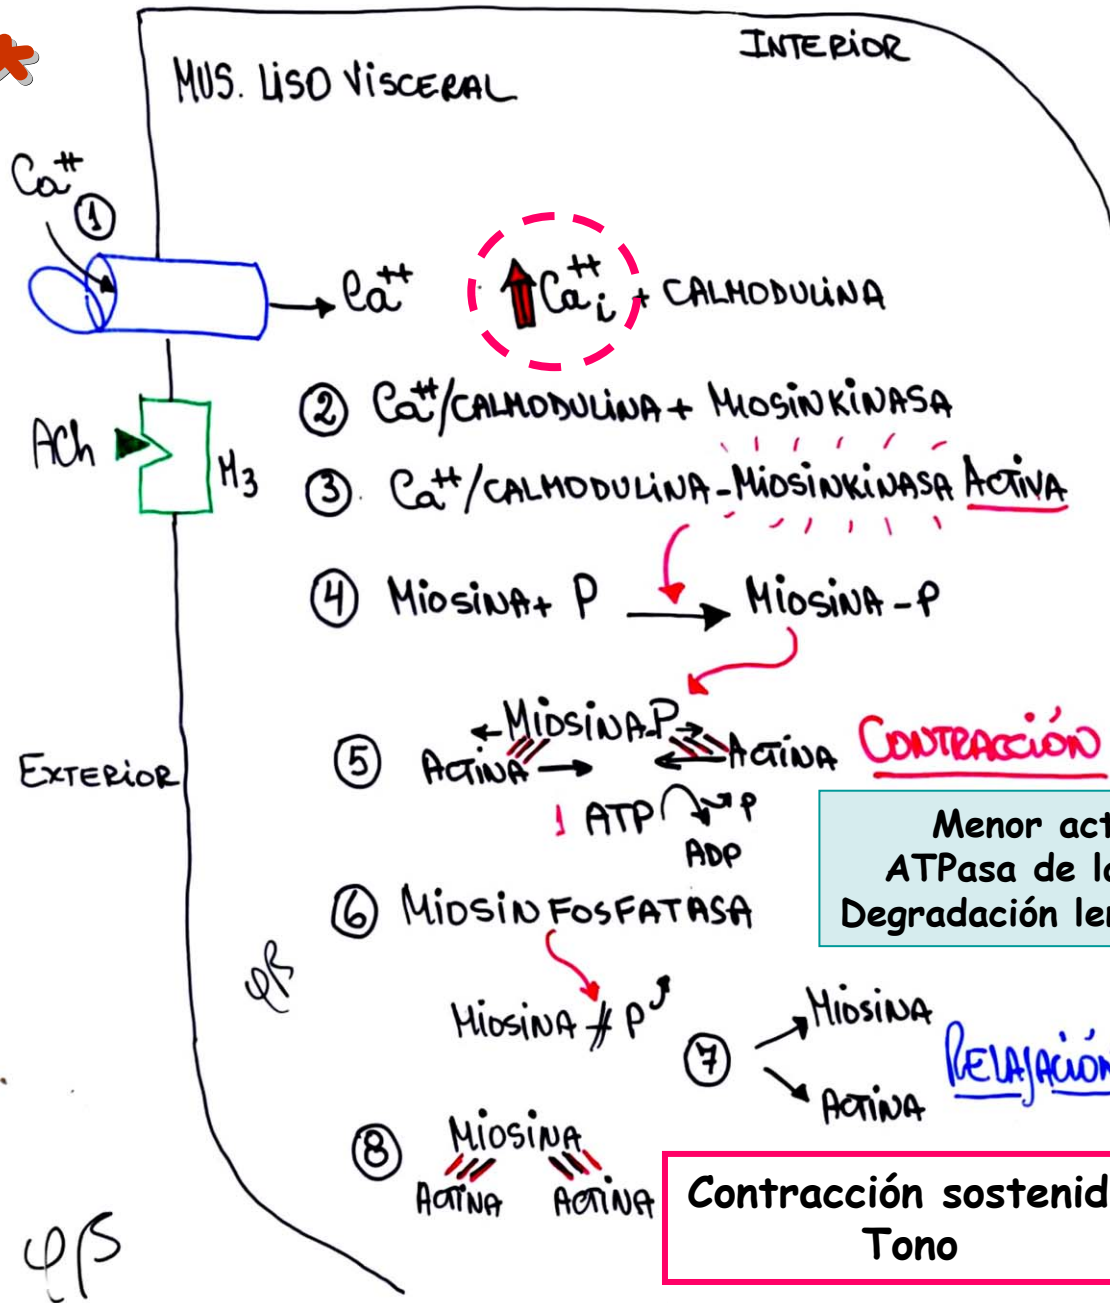 MUS. LISO VISCERAL
INTERIOR
Ca++
①
Ca++
Ca++i + CALMODULINA
② Ca++/CALMODULINA + MIOSINKINASA
ACh
M3
③. Ca++/CALMODULINA-MIOSINKINASA ACTIVA
④ MIOSINA + P → MIOSINA - P
⑤
←MIOSINA-P→
ACTINA → ← ACTINA
CONTRACCIÓN
EXTERIOR
1 ATP P
ADP
Menor act
ATPasa de l
Degradación le
⑥ MIOSINFOSFATASA
MIOSINA # P
⑦
MIOSINA
ACTINA
RELAJACIÓN
⑧
MIOSINA
ACTINA ACTINA
Contracción sostenid
Tono